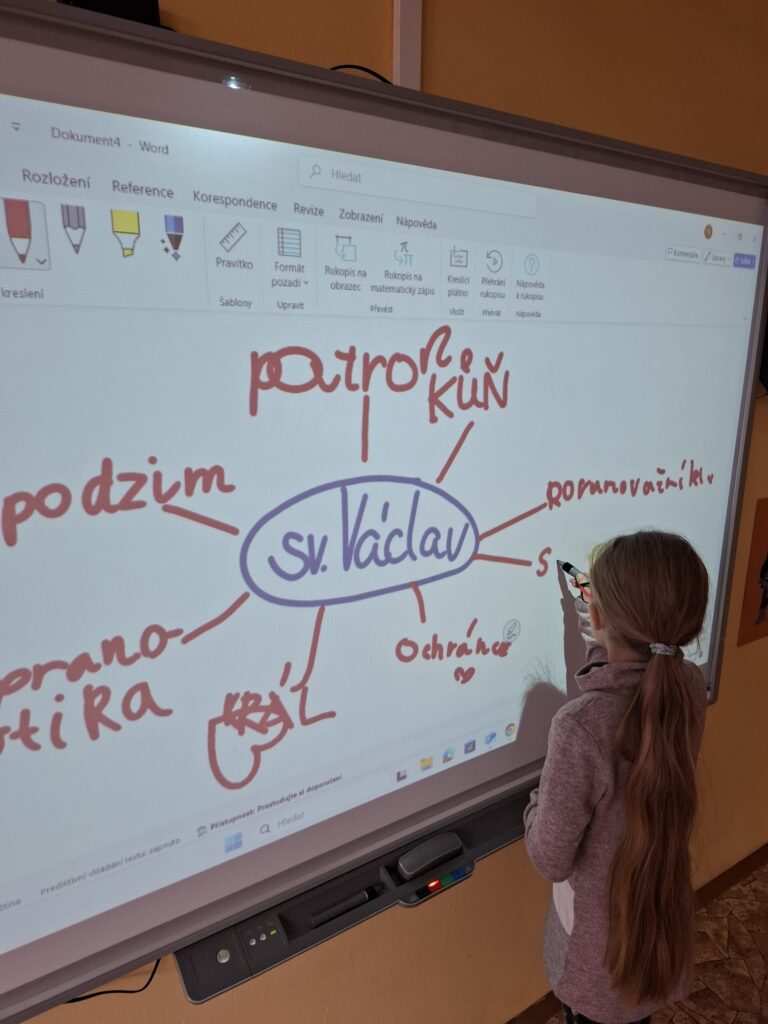 Dokument4 - Word
Hledat
Rozložení Reference Korespondence Revize Zobrazení Nápověda
Komentáře
Úpravy
Sdílet
Pravítko
Formát pozadí
Rukopis na obrazec
Rukopis na matematický zápis
Kreslicí plátno
Přehrání rukopisu
Nápověda k rukopisu
kreslení
Šablony
Upravit
Převést
Vložit
Přehrát
Nápověda
patron
KŮŇ
podzim
sv. Václav
S
Ochránce
prano-
stika
KRÁL
Prediktivní vkládání textu: zapnuto
Přístupnost: Prostudujte si doporučení
Hledat